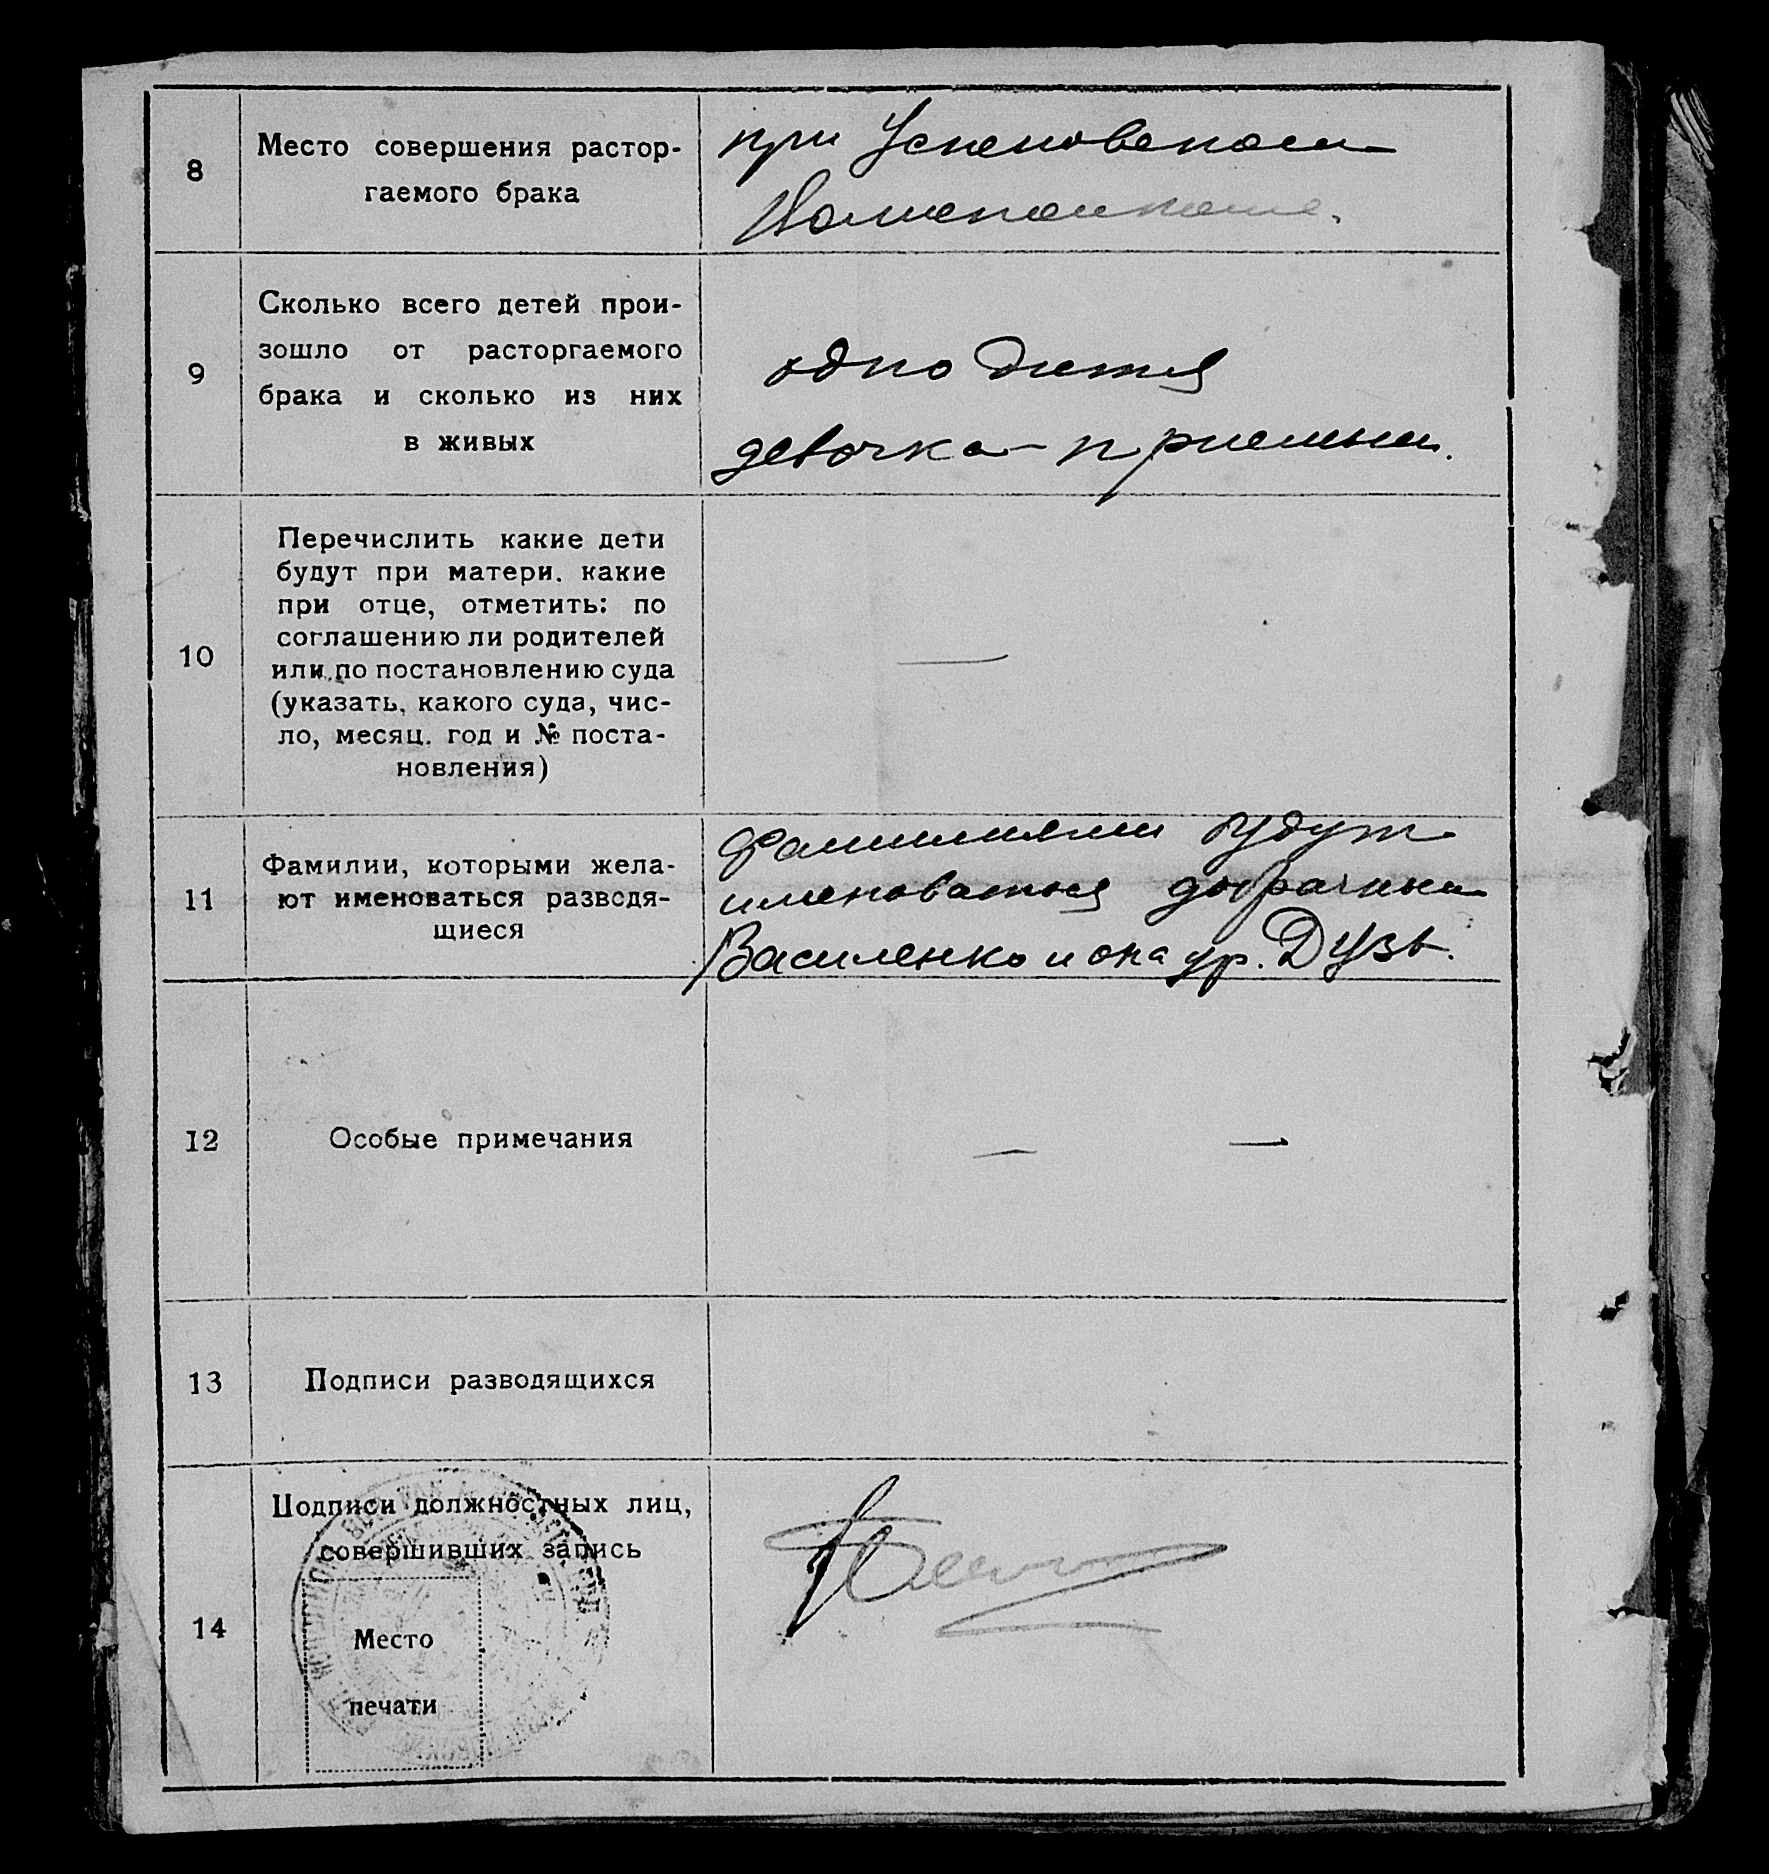 8
Место совершения растор-
гаемого брака
при Успеновском
9
Сколько всего детей прои-
зошло от расторгаемого
брака и сколько из них
в живых
одно дитя
девочка - приемыш.
10
Перечислить какие дети
будут при матери. какие
при отце, отметить: по
соглашению ли родителей
или по постановлению суда
(указать, какого суда, чис-
ло, месяц. год и № поста-
новления)
—
11
Фамилии, которыми жела-
ют именоваться разводя-
щиеся
Фамилиями будут
именоваться добрачными
Василенко и она ур. Дузь.
12
Особые примечания
— —
13
Подписи разводящихся
14
Подписи должностных лиц,
совершивших запись
Место
печати